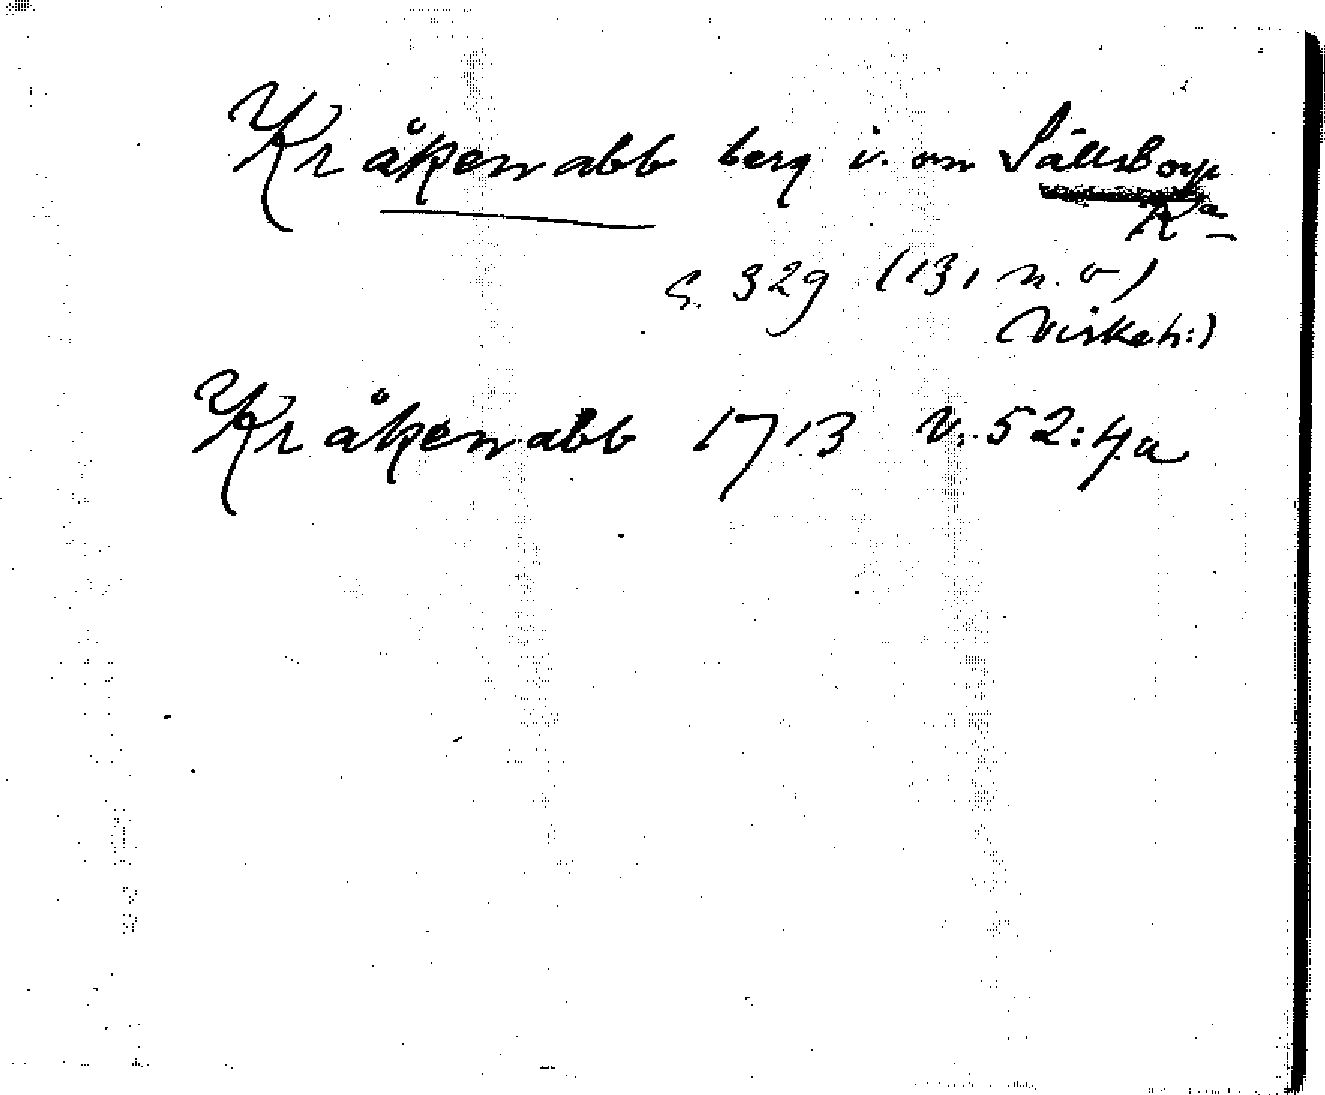 Kråkenabb berg i. om Sällstorp
Ka
S. 329 (131 n. v)
(Virkeh:)
Kråkenabb 1713 V. 52:4a